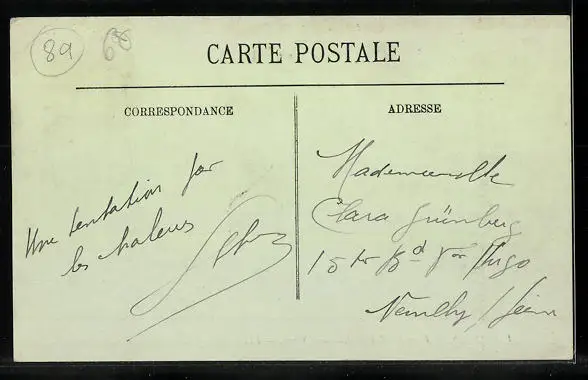 89
68
CARTE POSTALE
CORRESPONDANCE
ADRESSE
Une tentation par
les chaleurs
Mademoiselle
Clara Grünberg
15 ter Bd Vor Hugo
Neuilly s/ Seine